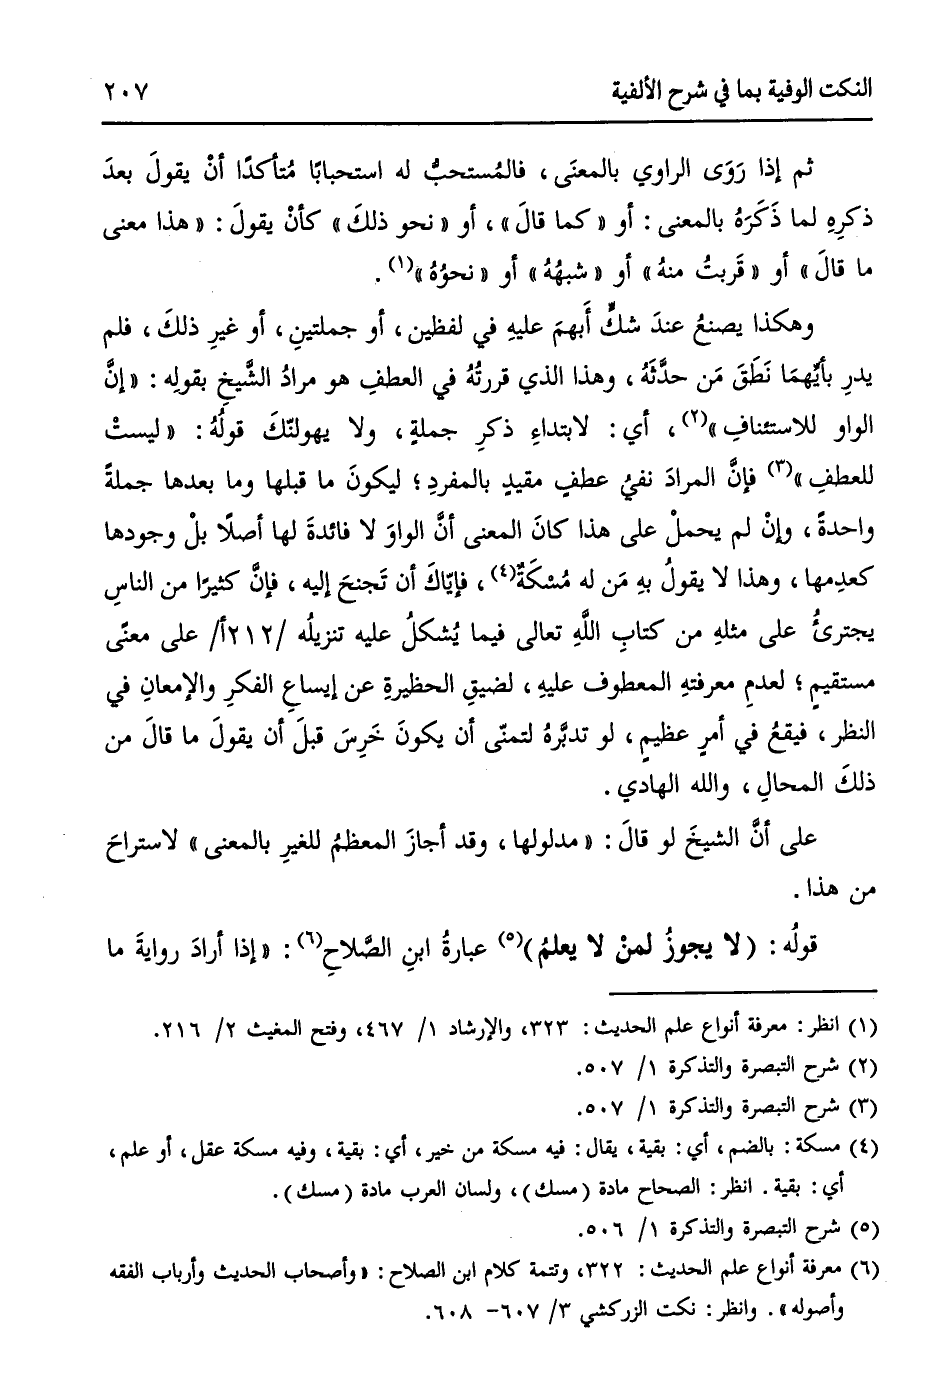 النكت الوفية بما في شرح الألفية ٢٠٧
ثم إذا رَوَى الراوي بالمعنَى، فالمُستحبُّ له استحبابًا مُتأكدًا أنْ يقولَ بعدَ
ذكرِهِ لما ذَكَرَهُ بالمعنى: أو « كما قالَ»، أو « نحو ذلكَ» كأنْ يقولَ: « هذا معنى
ما قالَ» أو « قَربتُ منهُ» أو « شبهُهُ» أو « نحوُهُ»(١).
وهكذا يصنعُ عندَ شكٍّ أَبهمَ عليهِ في لفظين، أو جملتينِ، أو غيرِ ذلكَ، فلم
يدرِ بأيِّهمَا نَطَقَ مَن حدَّثَهُ، وهذا الذي قررتُهُ في العطفِ هو مرادُ الشَّيخِ بقولِه: « إنَّ
الواو للاستئنافِ»(٢)، أي: لابتداءِ ذكرِ جملةٍ، ولا يهولنّكَ قولُهُ: « ليستْ
للعطفِ»(٣) فإنَّ المرادَ نفيُ عطفٍ مقيدٍ بالمفردِ؛ ليكونَ ما قبلها وما بعدها جملةً
واحدةً، وإنْ لم يحملْ على هذا كانَ المعنى أنَّ الواوَ لا فائدةَ لها أصلًا بلْ وجودها
كعدِمها، وهذا لا يقولُ بهِ مَن له مُسْكَةٌ(٤)، فإيّاكَ أن تَجنحَ إليه، فإنَّ كثيرًا من الناسِ
يجترئُ على مثلهِ من كتابِ اللَّهِ تعالى فيما يُشكلُ عليه تنزيلُه /٢١٢أ/ على معنًى
مستقيمٍ؛ لعدمِ معرفتهِ المعطوف عليهِ، لضيقِ الحظيرةِ عن إيساعِ الفكرِ والإمعانِ في
النظر، فيقعُ في أمرٍ عظيمٍ، لو تدبَّرهُ لتمنّى أن يكونَ خَرِسَ قبلَ أن يقولَ ما قالَ من
ذلكَ المحالِ، والله الهادي.
على أنَّ الشيخَ لو قالَ: « مدلولها، وقد أجازَ المعظمُ للغيرِ بالمعنى» لاستراحَ
من هذا.
قولُه: (لا يجوزُ لمنْ لا يعلمُ)(٥) عبارةُ ابنِ الصَّلاحِ(٦): « إذا أرادَ روايةَ ما
(١) انظر: معرفة أنواع علم الحديث: ٣٢٣، والإرشاد ١/ ٤٦٧، وفتح المغيث ٢/ ٢١٦.
(٢) شرح التبصرة والتذكرة ١/ ٥٠٧.
(٣) شرح التبصرة والتذكرة ١/ ٥٠٧.
(٤) مسكة: بالضم، أي: بقية، يقال: فيه مسكة من خير، أي: بقية، وفيه مسكة عقل، أو علم،
أي: بقية. انظر: الصحاح مادة (مسك)، ولسان العرب مادة (مسك).
(٥) شرح التبصرة والتذكرة ١/ ٥٠٦.
(٦) معرفة أنواع علم الحديث: ٣٢٢، وتتمة كلام ابن الصلاح: « وأصحاب الحديث وأرباب الفقه
وأصوله». وانظر: نكت الزركشي ٣/ ٦٠٧- ٦٠٨.